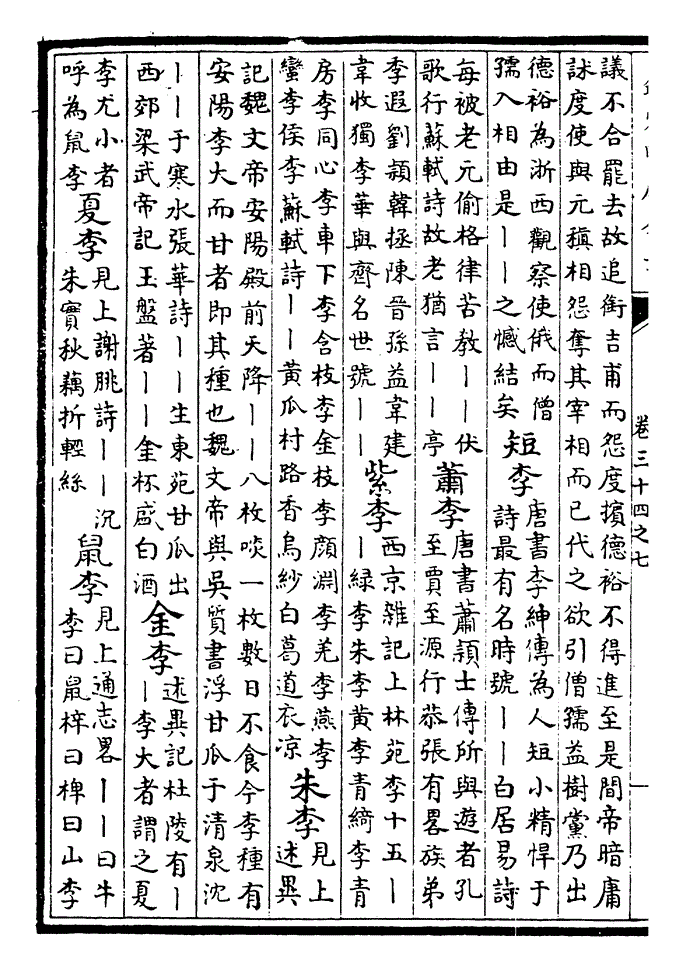 議不合罷去故追銜吉甫而怨度擯德裕不得進至是間帝暗庸
訹度使與元稹相怨奪其宰相而已代之欲引僧孺益樹黨乃出
德裕為浙西觀察使俄而僧
孺入相由是丨丨之憾結矣
短李
唐書李紳傳為人短小精悍于
詩最有名時號丨丨白居易詩
每被老元偷格律苦教丨丨伏
歌行蘇軾詩故老猶言丨丨亭
蕭李
唐書蕭穎士傳所與遊者孔
至賈至源行恭張有畧族弟
季遐劉穎韓拯陳晉孫益韋建
韋收獨李華與齊名世號丨丨
紫李
西京雜記上林苑李十五丨
丨綠李朱李黄李青綺李青
房李同心李車下李含枝李金枝李顔淵李羌李燕李
蠻李侯李蘇軾詩丨丨黄瓜村路香烏紗白葛道衣涼
朱李
見上
述異
記魏文帝安陽殿前天降丨丨八枚啖一枚數日不食今李種有
安陽李大而甘者即其種也魏文帝與吳質書浮甘瓜于清泉沈
丨丨于寒水張華詩丨丨生東苑甘瓜出
西郊梁武帝記玉盤著丨丨金杯盛白酒
金李
述異記杜陵有丨
丨李大者謂之夏
李尤小者
呼為鼠李
夏李
見上謝朓詩丨丨沉
朱實秋藕折輕絲
鼠李
見上通志畧丨丨曰牛
李曰鼠梓曰椑曰山李
卷三十四之七
一